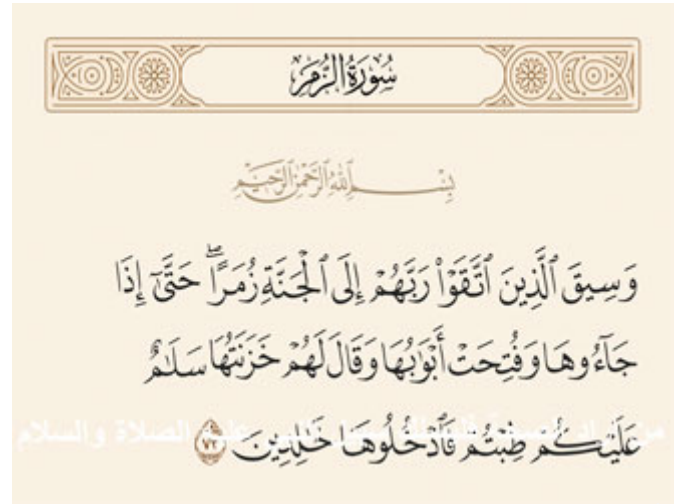 سُورَةُ الزُّمَرِ
بِسْمِ ٱللَّهِ ٱلرَّحْمَٰنِ ٱلرَّحِيمِ
وَسِيقَ ٱلَّذِينَ ٱتَّقَوْا۟ رَبَّهُمْ إِلَى ٱلْجَنَّةِ زُمَرًا ۖ حَتَّىٰٓ إِذَا
جَآءُوهَا وَفُتِحَتْ أَبْوَٰبُهَا وَقَالَ لَهُمْ خَزَنَتُهَا سَلَـٰمٌ
عَلَيْكُمْ طِبْتُمْ فَٱدْخُلُوهَا خَـٰلِدِينَ ٧٣
من أراد الصلاة والسلام